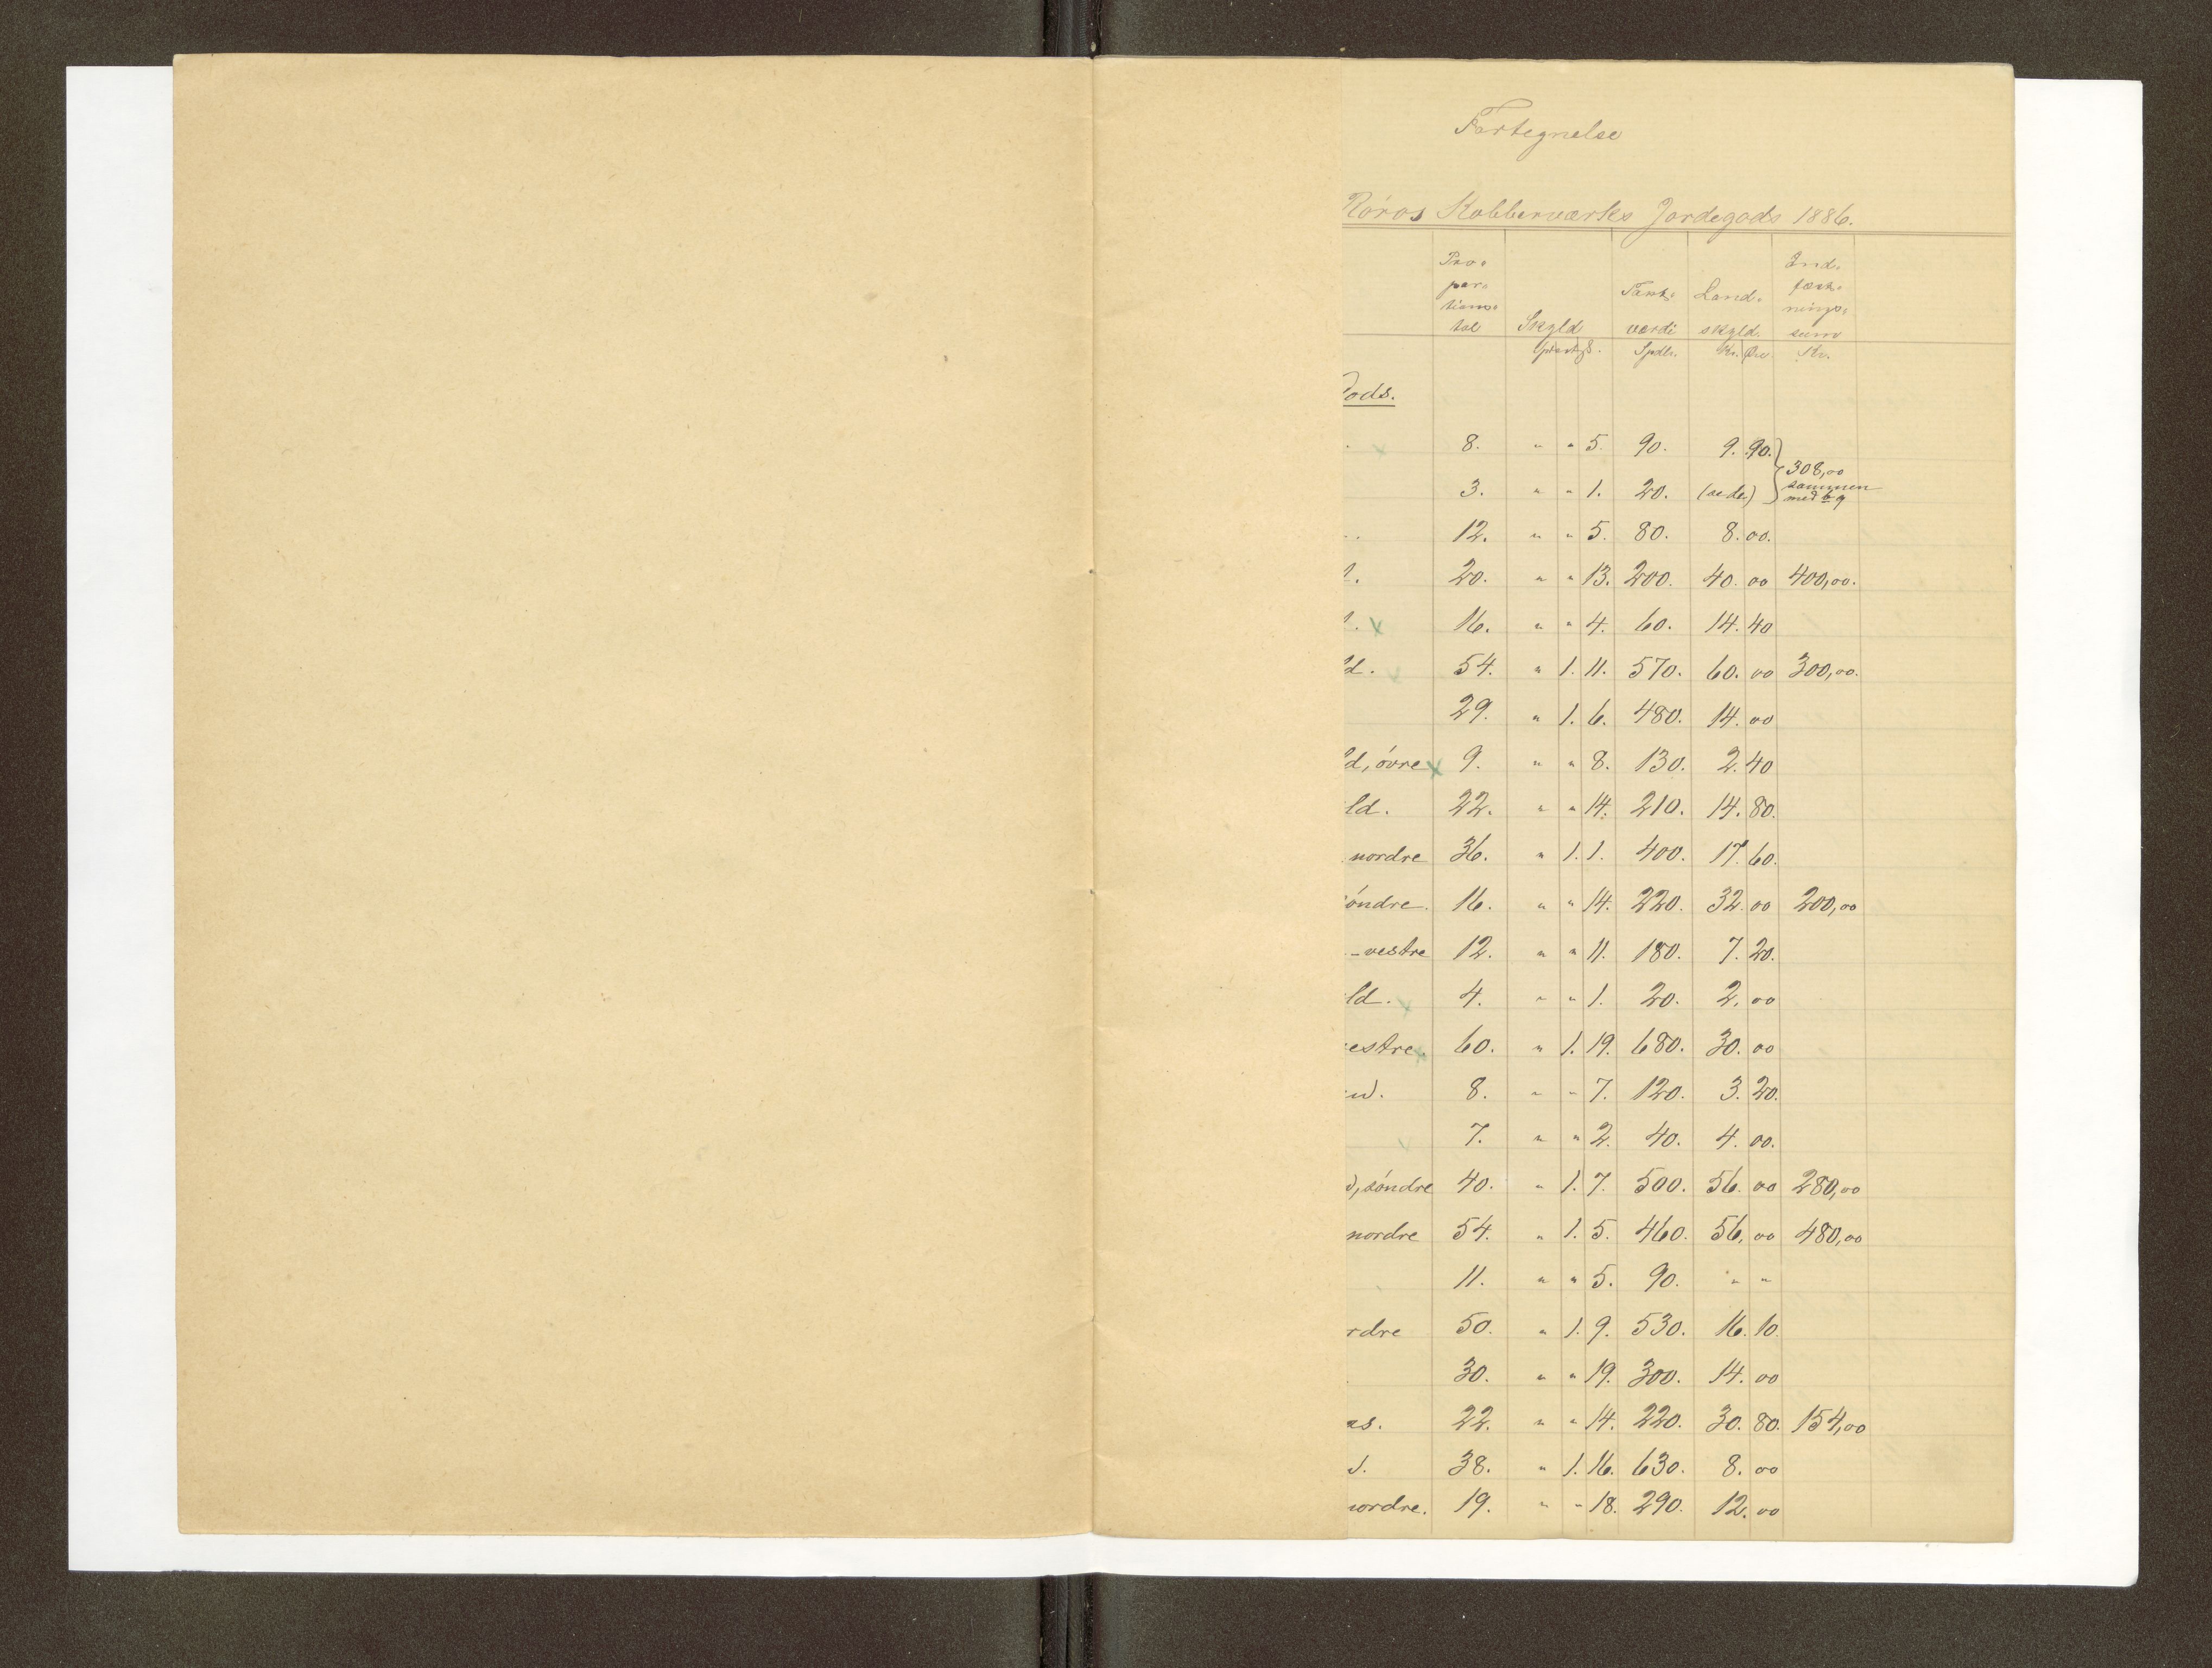 Fortegnelse
Røros Kobberværks Jordegods 1886.
Pro- por- tions- tal | Skyld | Taxt- værdi | Land- skyld. | Ind. fæst- nings- sum
Spdlr. | Kr. Øre | Kr.
Gods.
8. " " 5. 90. 9. 90. 308,00
3. " " 1. 20. sammen med
12. " " 5. 80. 8. 00.
20. " " 13. 200. 40. 00 400,00.
16. " " 4. 60. 14. 40
ld. 54. " 1. 11. 570. 60. 00 300,00.
29. " 1. 6. 480. 14. 00
ld, övre x 9. " " 8. 130. 2. 40
ld. 22. " " 14. 210. 14. 80.
nordre 36. " 1. 1. 400. 17. 60.
öndre. 16. " " 14. 220. 32. 00 200,00
-vestre 12. " " 11. 180. 7. 20.
ld. 4. " " 1. 20. 2. 00
estre. 60. " 1. 19. 680. 30. 00
8. " " 7. 120. 3. 20.
7. " " 2. 40. 4. 00.
, söndre 40. " 1. 7. 500. 56. 00 280,00
nordre 54. " 1. 5. 460. 56. 00 480,00
11. " " 5. 90. " "
rdre 50. " 1. 9. 530. 16. 10.
30. " " 19. 300. 14. 00
as. 22. " " 14. 220. 30. 80. 154,00
d. 38. " 1. 16. 630. 8. 00
nordre. 19. " " 18. 290. 12. 00